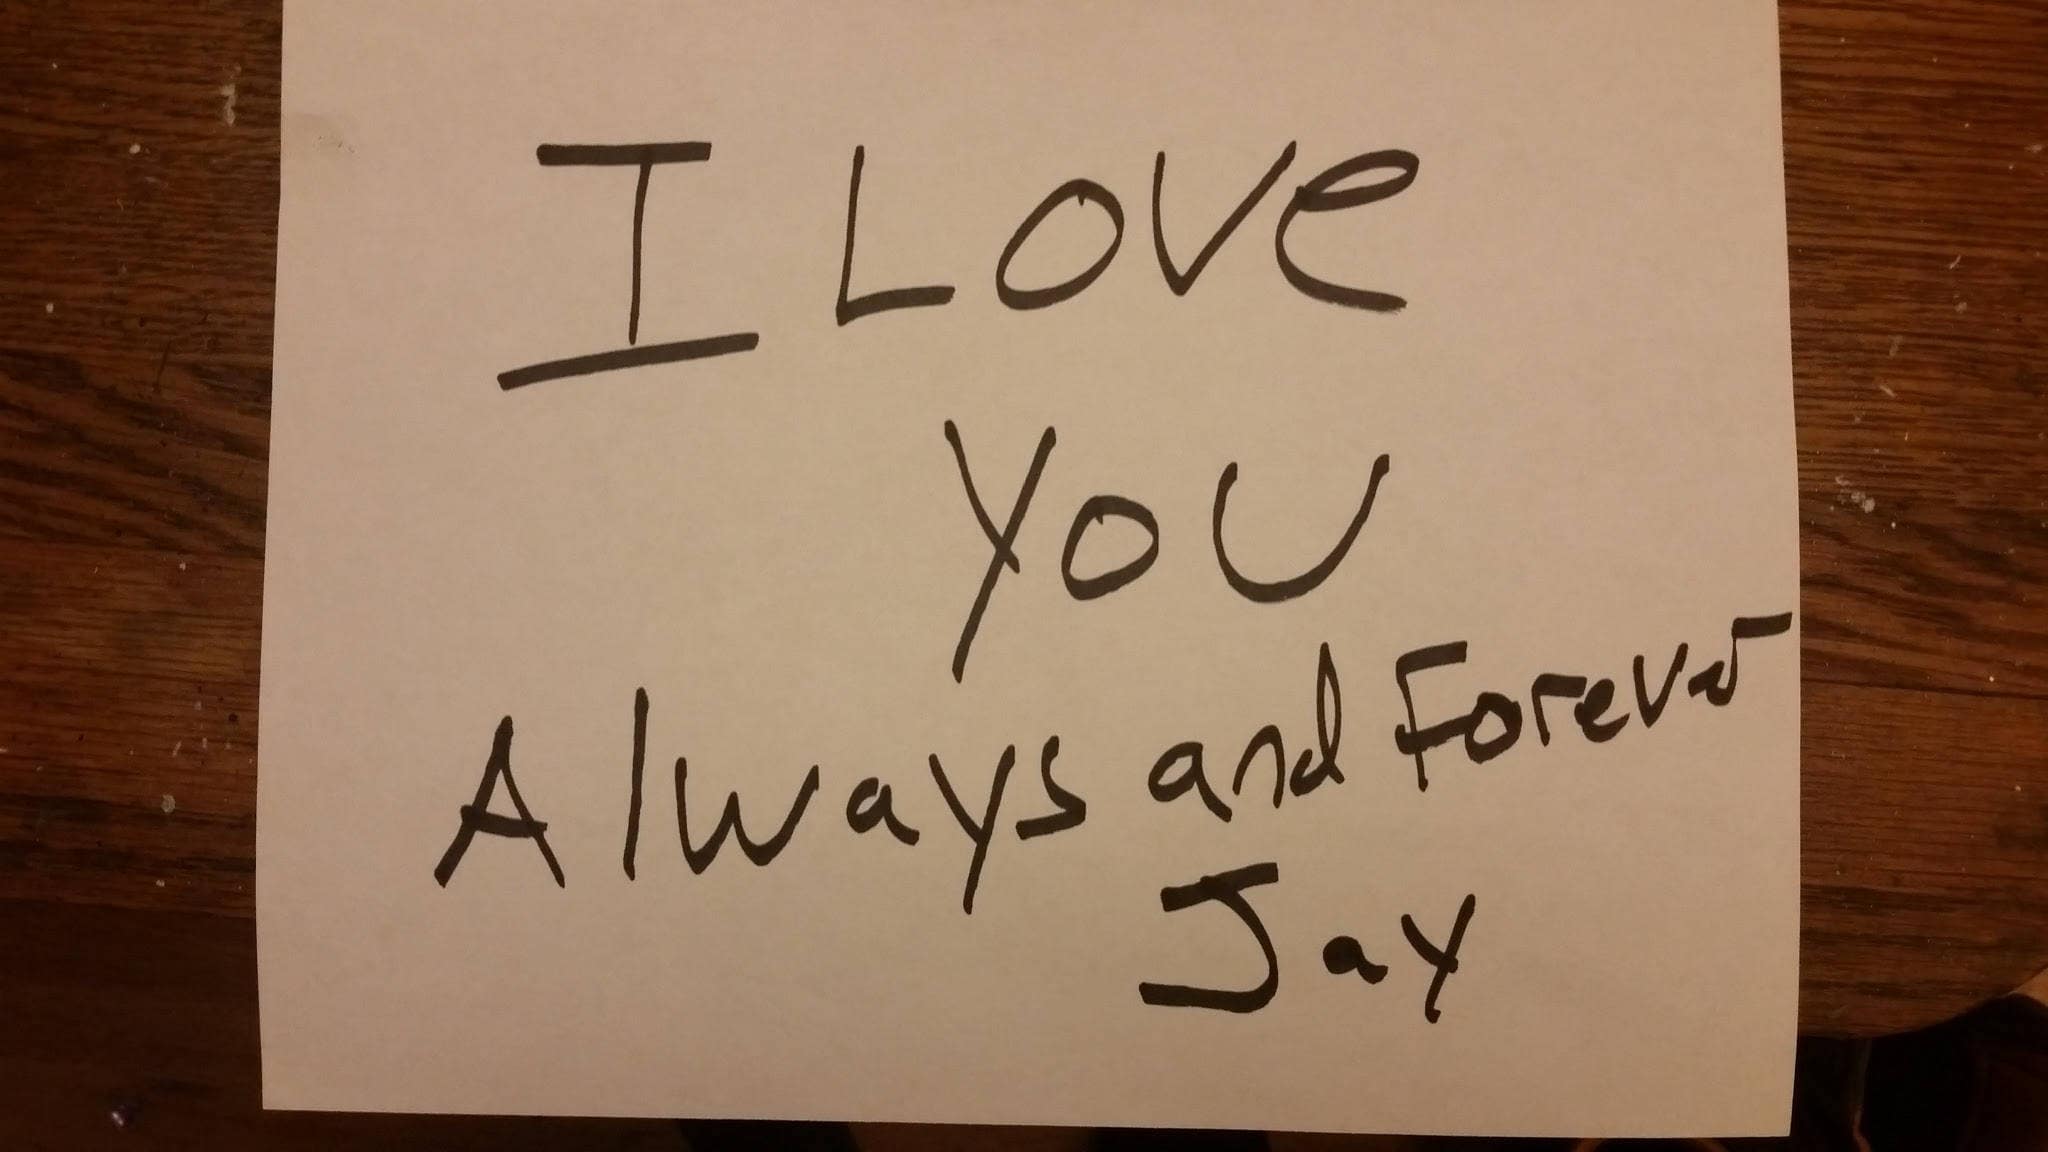 I Love
you
Always and Forever
Jay